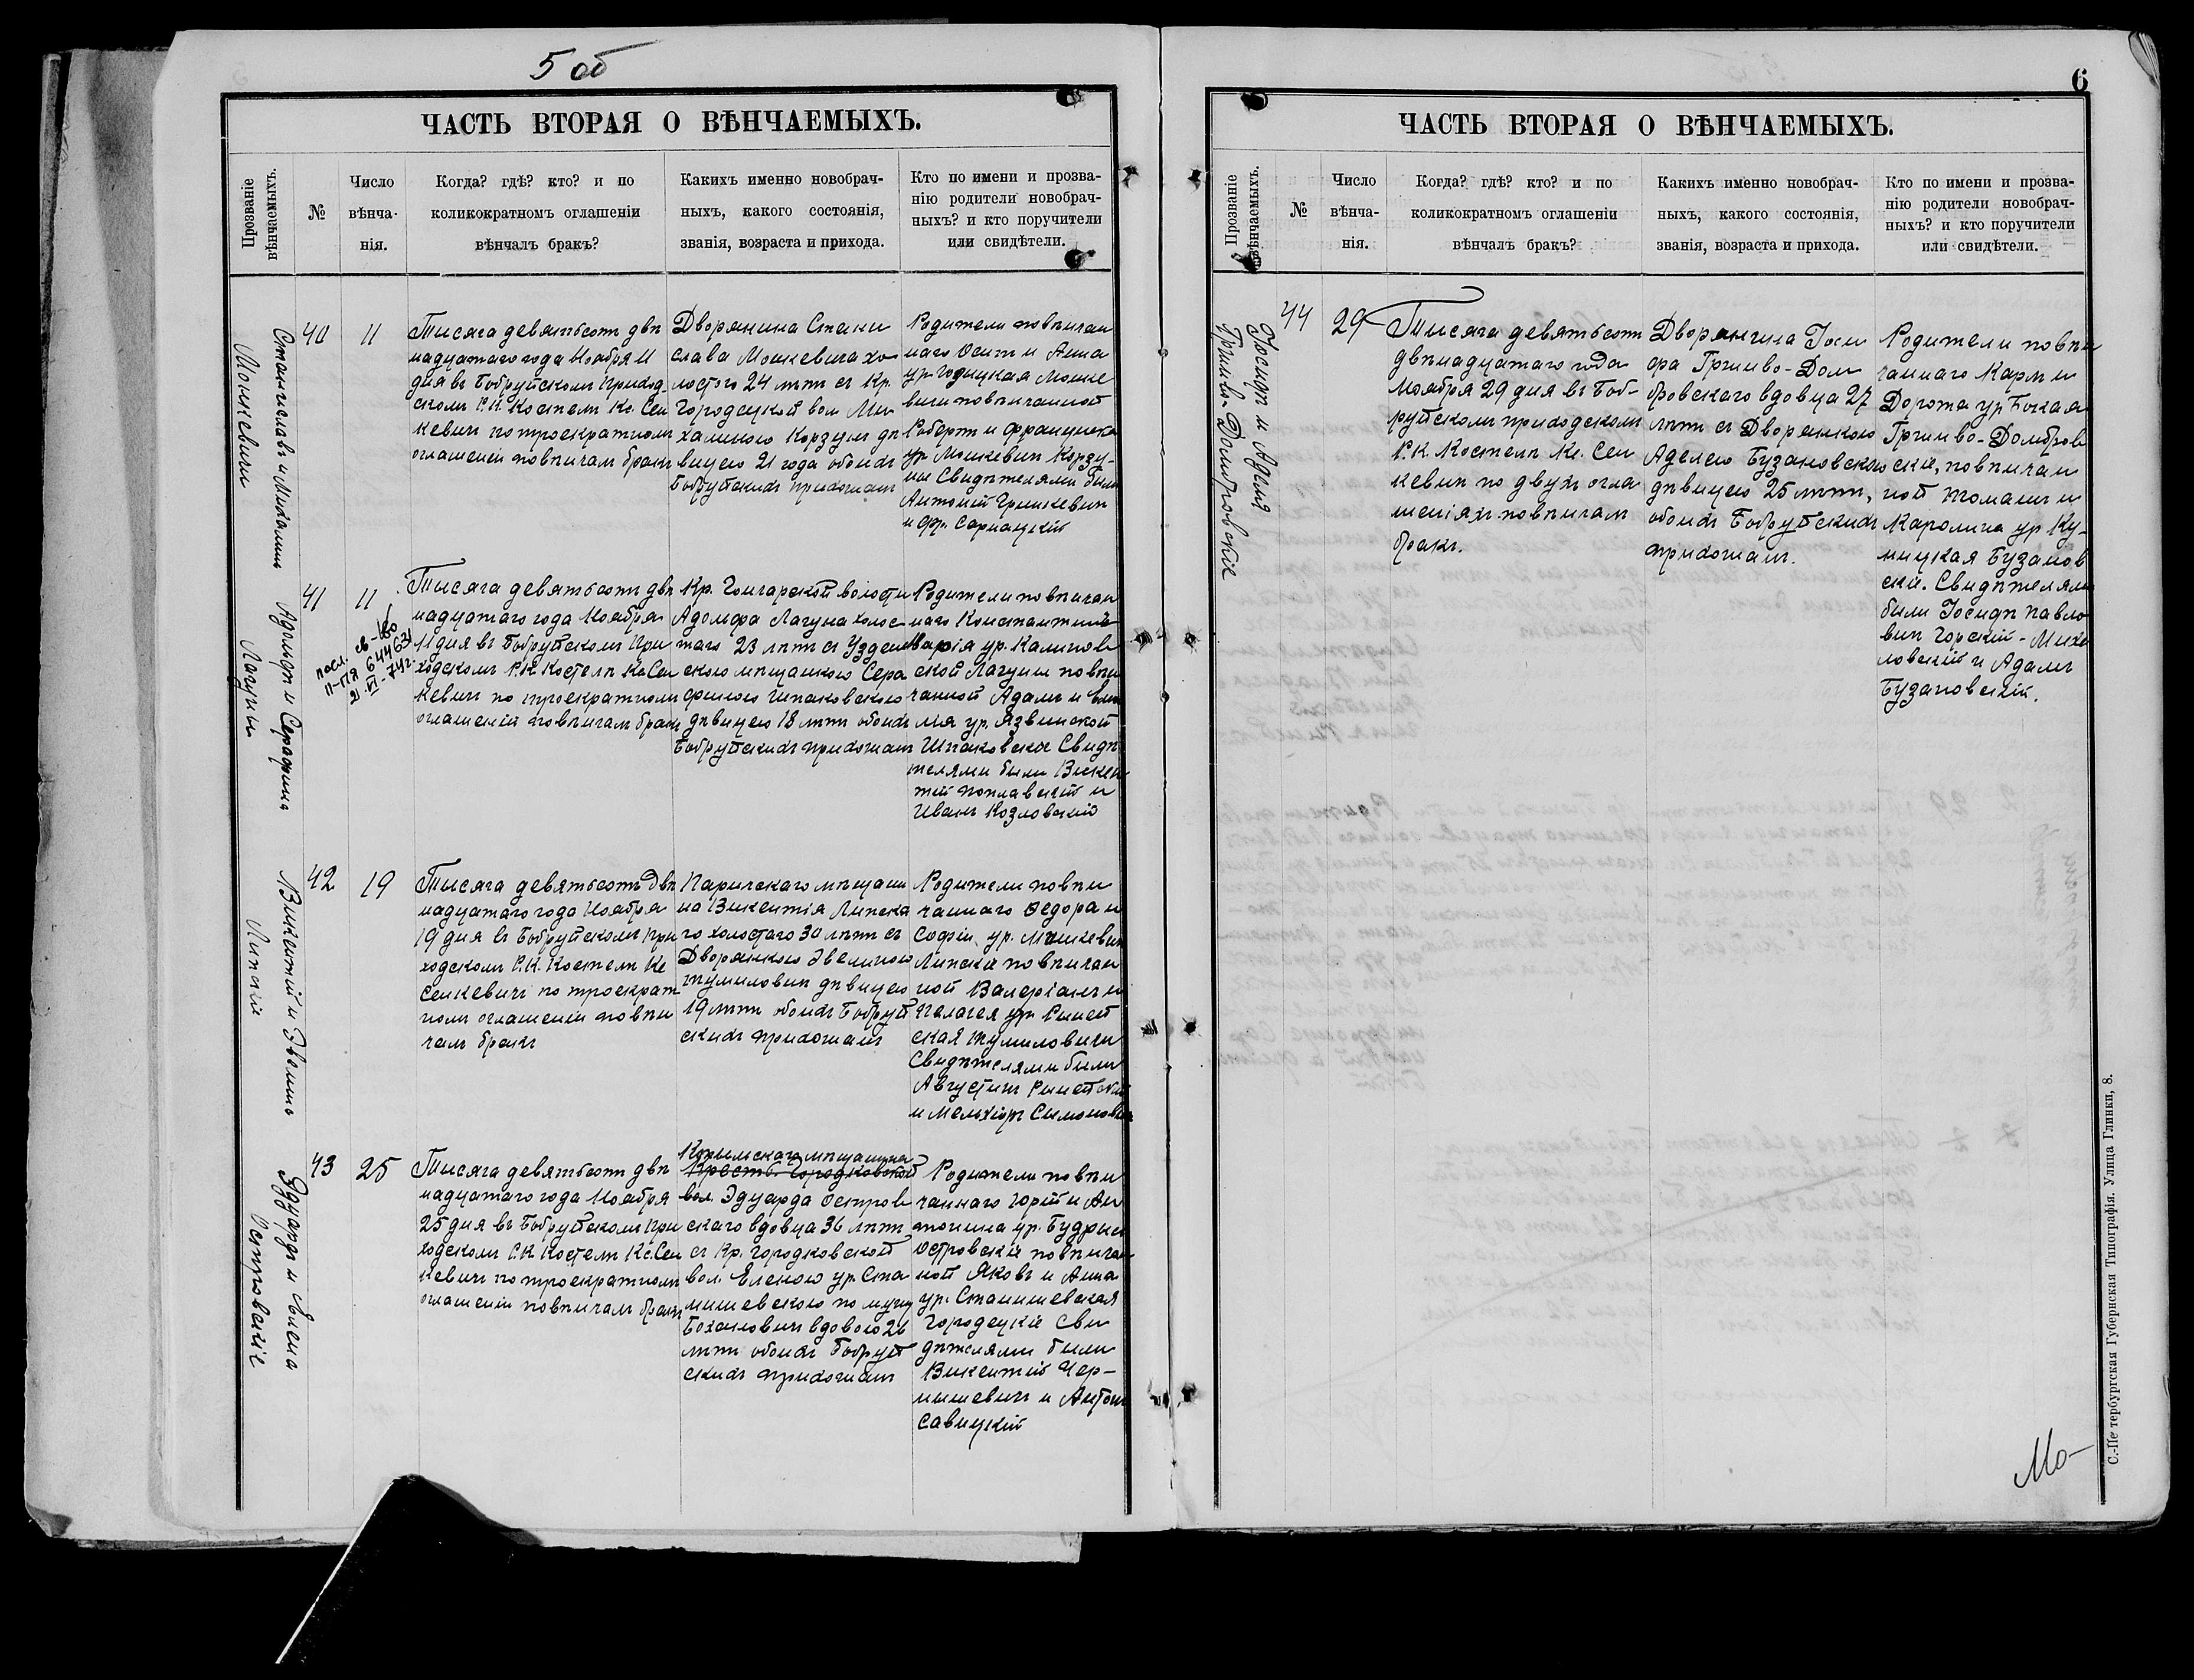 5 об
ЧАСТЬ ВТОРАЯ О ВѢНЧАЕМЫХЪ.
Прозваніе вѣнчаемыхъ.
№
Число
вѣнча-
нія.
Когда? гдѣ? кто? и по
коликократномъ оглашеніи
вѣнчалъ бракъ?
Какихъ именно новобрач-
ныхъ, какого состоянія,
званія, возраста и прихода.
Кто по имени и прозва-
нію родители новобрач-
ныхъ? и кто поручители
или свидѣтели.
Станиславъ и Михалина
Мошкевичи
40
11
Тысяча девятьсотъ двѣ
надцатаго года Ноября 11
дня въ Бобруйскомъ приход
скомъ Р.К. Костелѣ Кс. Сен
кевичъ по троекратномъ
оглашеніи повѣнчалъ бракъ
Дворянина Стани
слава Мошкевича хо
лостого 24 лѣтъ съ Кр.
Городецкой вол. Ми
халиною Корзунъ дѣ
вицею 21 года обоихъ
Бобруйскихъ прихожанъ
Родители повѣнчан
наго Осипъ и Анна
ур. Годицкая Мошке
вичи повѣнчанной
Робертъ и Франциска
ур. Мошкевичъ Корзу-
ны Свидѣтелями были
Антоній Гришкевичъ
и Фр. Сарнацкій
Адольфъ и Серафина
Лагуны
41
11
пасп. св-во
II-ПЯ 644631
21.VI.74г.
Тысяча девятьсотъ двѣ
надцатаго года Ноября
11 дня въ Бобруйскомъ при
ходскомъ Р.К. Костелѣ Кс. Сен
кевичъ по троекратномъ
оглашеніи повѣнчалъ бракъ
Кр. Гончарской волости
Адольфа Лагуна холос
таго 23 лѣтъ съ Узден
скою мѣщанкою Сера
финою Шпаковскою
дѣвицею 18 лѣтъ обоихъ
Бобруйскихъ прихожанъ
Родители повѣнчан
наго Константинъ
Марія ур. Калинов
ской Лагуны повѣн
чанной Адамъ и
лія ур. Язвинской
Шпаковскіе Свидѣ
телями были Викен
тій Поплавскій и
Иванъ Козловскій
Викентій и Эвелина
Липскіе
42
19
Тысяча девятьсотъ двѣ
надцатаго года Ноября
19 дня въ Бобруйскомъ при
ходскомъ Р.К. Костелѣ Кс
Сенкевичъ по троекрат
номъ оглашеніи повѣн
чалъ бракъ
Паричскаго мѣщани
на Викентія Липска
го холостаго 30 лѣтъ съ
Дворянкою Эвелиною
Тумиловичъ дѣвицею
19 лѣтъ обоихъ Бобруй
скихъ прихожанъ
Родители повѣн
чаннаго Ѳедора и
Софіи ур. Мошкевичъ
Липскіе повѣнчан
ной Валеріанъ и
Пелагея ур. Рыней
ская Тумиловичи
Свидѣтелями были
Августинъ Рынейскій
и Мельхіоръ Симонович
Эдуардъ и Елена
Островскіе
43
25
Тысяча девятьсотъ двѣ
надцатаго года Ноября
25 дня въ Бобруйскомъ при
ходскомъ Р.К. Костелѣ Кс. Сен
кевичъ по троекратномъ
оглашеніи повѣнчалъ бракъ
мѣщанина
Крестъ. Городковской
вол. Эдуарда Островс
скаго вдовца 36 лѣтъ
съ Кр. Городковской
вол. Еленою ур. Ста
нишевскою по мужу
Боханович вдовою 26
лѣтъ обоихъ Бобруй
скихъ прихожанъ
Родители повѣн
чаннаго Юрій и Ан
тонина ур. Будрын
Островскіе повѣнчан
ной Яковъ и Анна
ур. Станишевская
Городецкіе Сви
дѣтелями были
Викентій Чер-
нышевичъ и Антонъ
Савицкій
6
ЧАСТЬ ВТОРАЯ О ВѢНЧАЕМЫХЪ.
Прозваніе вѣнчаемыхъ.
№
Число
вѣнча-
нія.
Когда? гдѣ? кто? и по
коликократномъ оглашеніи
вѣнчалъ бракъ?
Какихъ именно новобрач-
ныхъ, какого состоянія,
званія, возраста и прихода.
Кто по имени и прозва-
нію родители новобрач-
ныхъ? и кто поручители
или свидѣтели.
Іосифъ и Аделя
Гринево-Домбровскіе
44
29
Тысяча девятьсотъ
двѣнадцатаго года
Ноября 29 дня въ Боб-
руйскомъ приходскомъ
Р.К. Костелѣ Кс. Сен
кевичъ по двухъ огла
шеніяхъ повѣнчалъ
бракъ.
Дворянина Іоси
фа Гринево-Дом
бровскаго вдовца 27
лѣтъ съ Дворянкою
Аделею Бузановскою
дѣвицею 25 лѣтъ,
обоихъ Бобруйскихъ
прихожанъ.
Родители повѣн
чаннаго Карлъ и
Дорота ур.
Гринево-Домбров
скіе, повѣнчан
ной Томашъ и
Каролина ур. Ку-
лицкая Бузанов
скіе. Свидѣтелями
были Іосифъ Павло
вичъ Горскій-Миха
ловскій и Адамъ
Бузановскій.
Мо-
С.-Петербургская Губернская Типографія. Улица Глинки, 8.